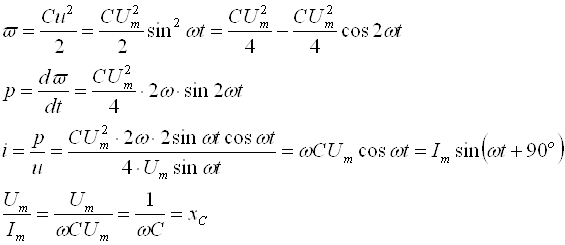 ϖ = Cu²/2 = CU_m²/2 sin² ωt = CU_m²/4 − CU_m²/4 cos 2ωt
p = dϖ/dt = CU_m²/4 · 2ω · sin 2ωt
i = p/u = CU_m² · 2ω · 2 sin ωt cos ωt / 4 · U_m sin ωt = ωCU_m cos ωt = I_m sin(ωt + 90°)
U_m/I_m = U_m/ωCU_m = 1/ωC = x_C